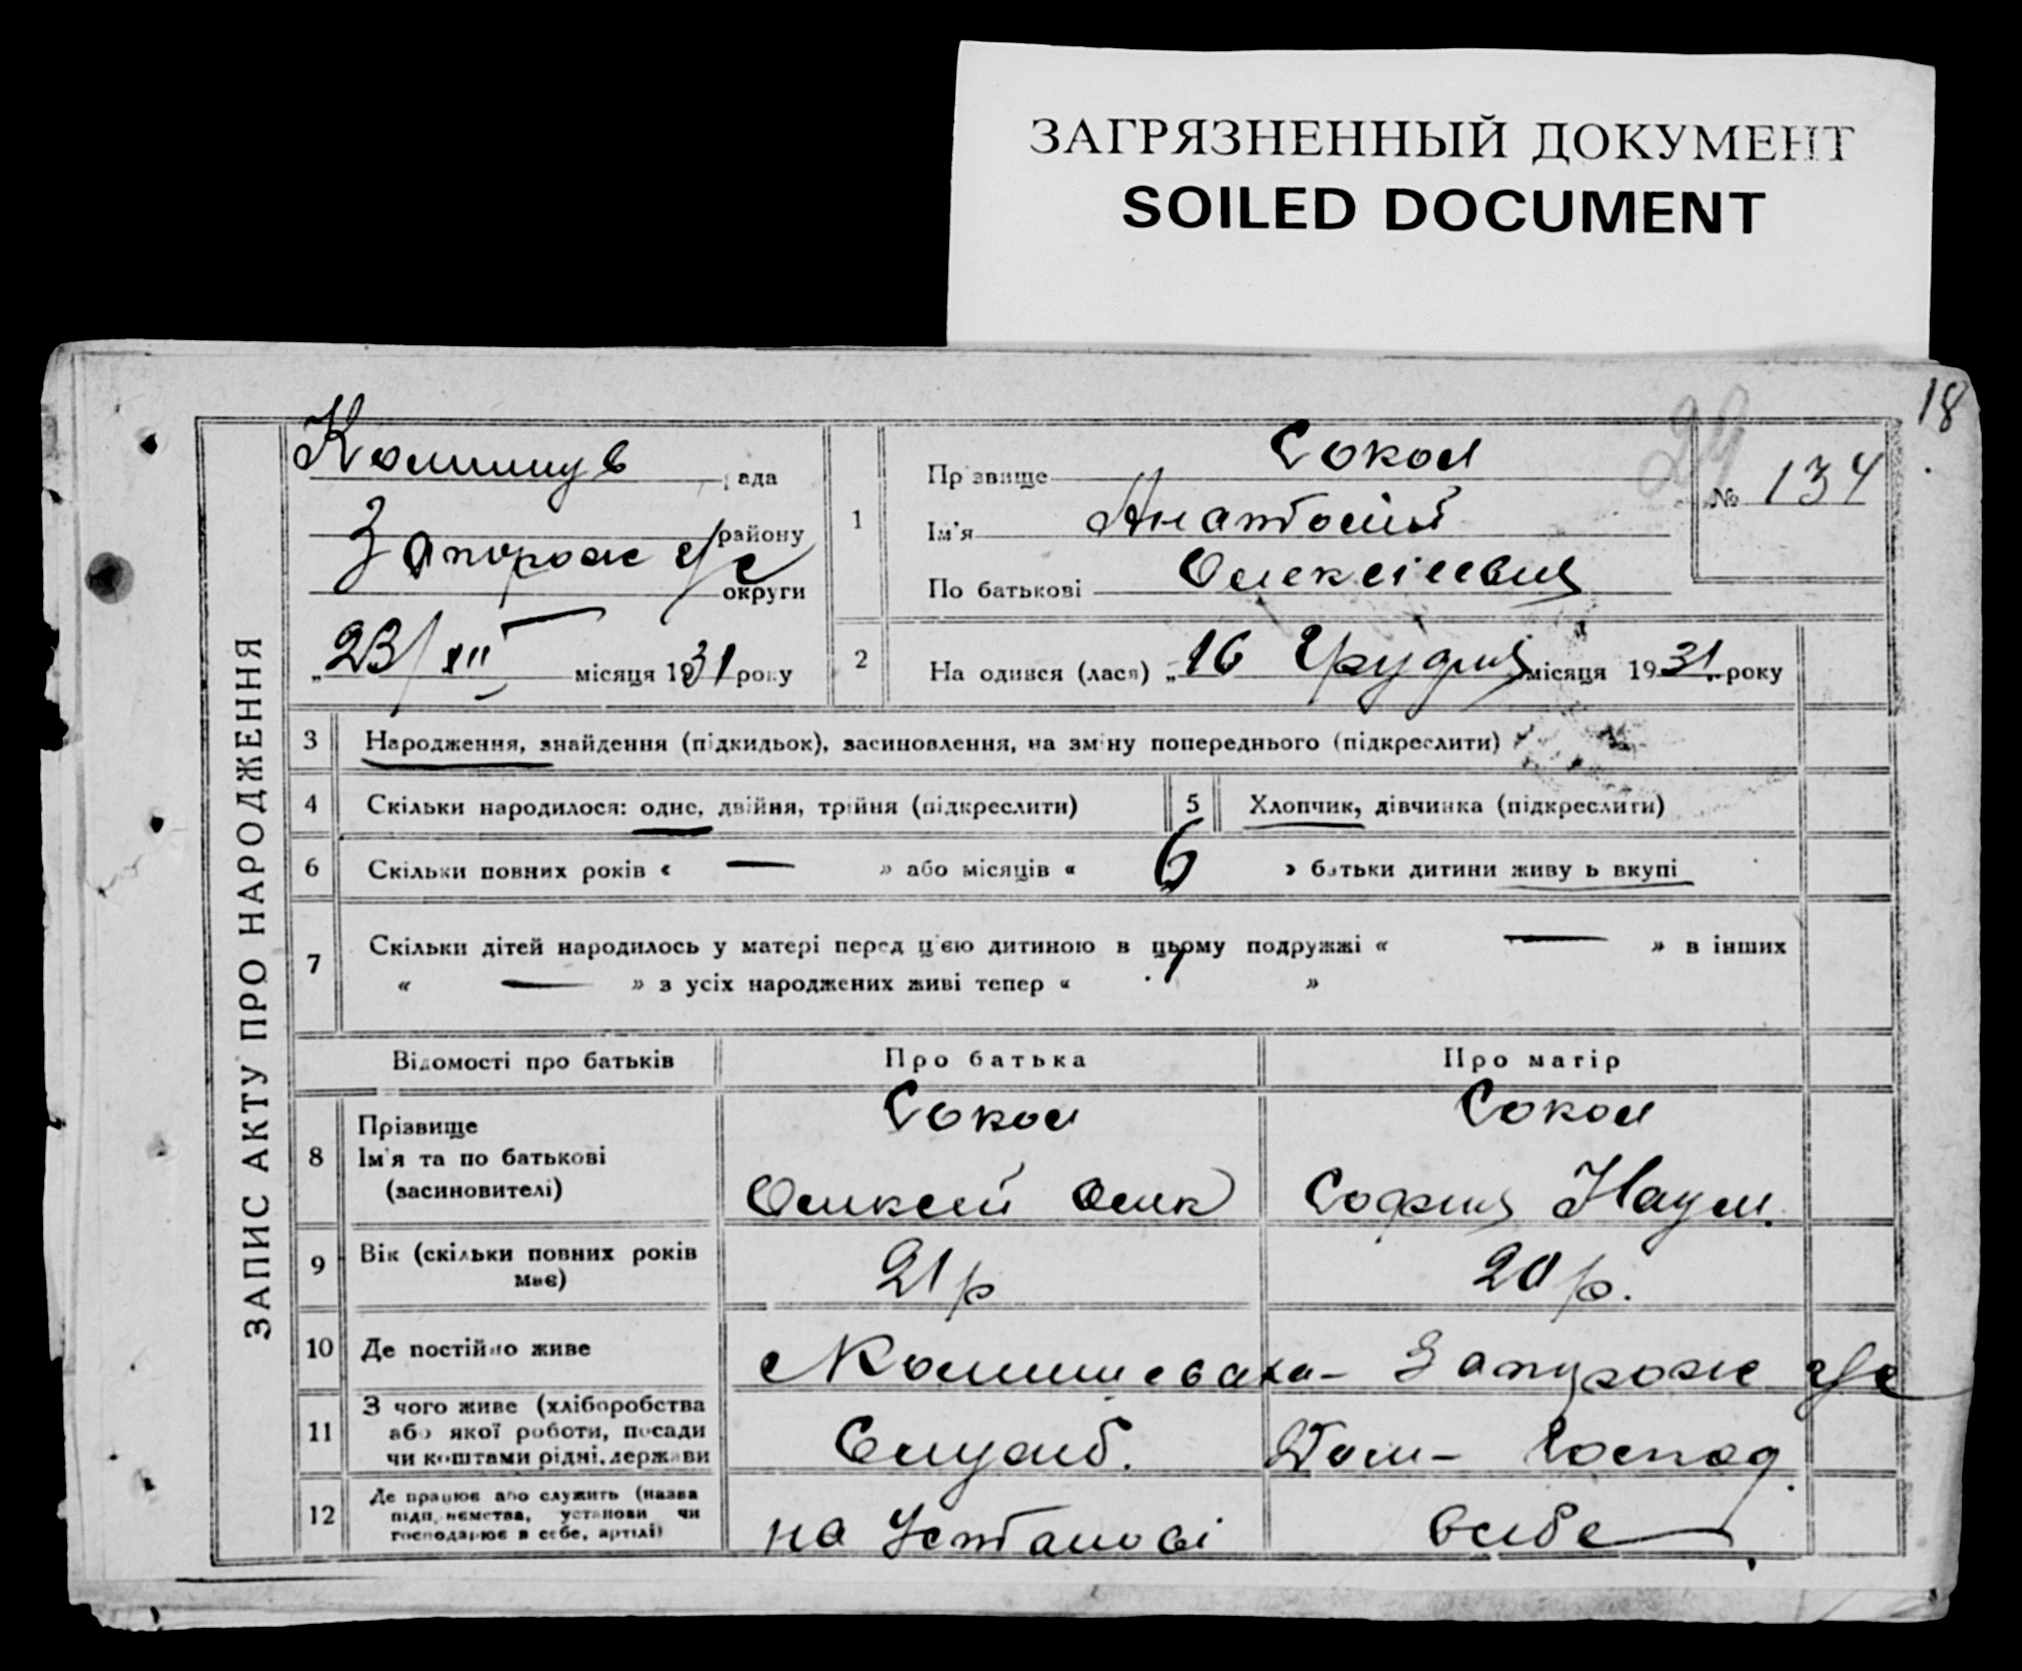 ЗАГРЯЗНЕННЫЙ ДОКУМЕНТ
SOILED DOCUMENT
18
24
ЗАПИС АКТУ ПРО НАРОДЖЕННЯ
рада
району
округи
„23/XII місяця 1931 року
1
Прізвище Сокол
Ім'я Анатолій
По батькові
№ 134
2
На одився (лася) „16 Грудня місяця 1931 року
3
Народження, знайдення (підкидьок), засиновлення, на зміну попереднього (підкреслити)
4
Скільки народилося: одне, двійня, трійня (підкреслити)
5
Хлопчик, дівчинка (підкреслити)
6
Скільки повних років « — » або місяців « 6 » батьки дитини живуть вкупі
7
Скільки дітей народилось у матері перед цією дитиною в цьому подружжі « — » в інших
« — » з усіх народжених живі тепер « 1 »
Відомості про батьків
Про батька
Про матір
8
Прізвище
Ім'я та по батькові
(засиновителі)
Сокол
Олексій Олек
Сокол
София Наум.
9
Вік (скільки повних років
має)
21 р
20 р.
10
Де постійно живе
11
З чого живе (хліборобства
або якої роботи, посади
чи коштами рідні, держави
Служб.
Дом– господ.
12
Де працює або служить (назва
підприємства, установи чи
господарює в себе, артілі)
на Установі
всебе